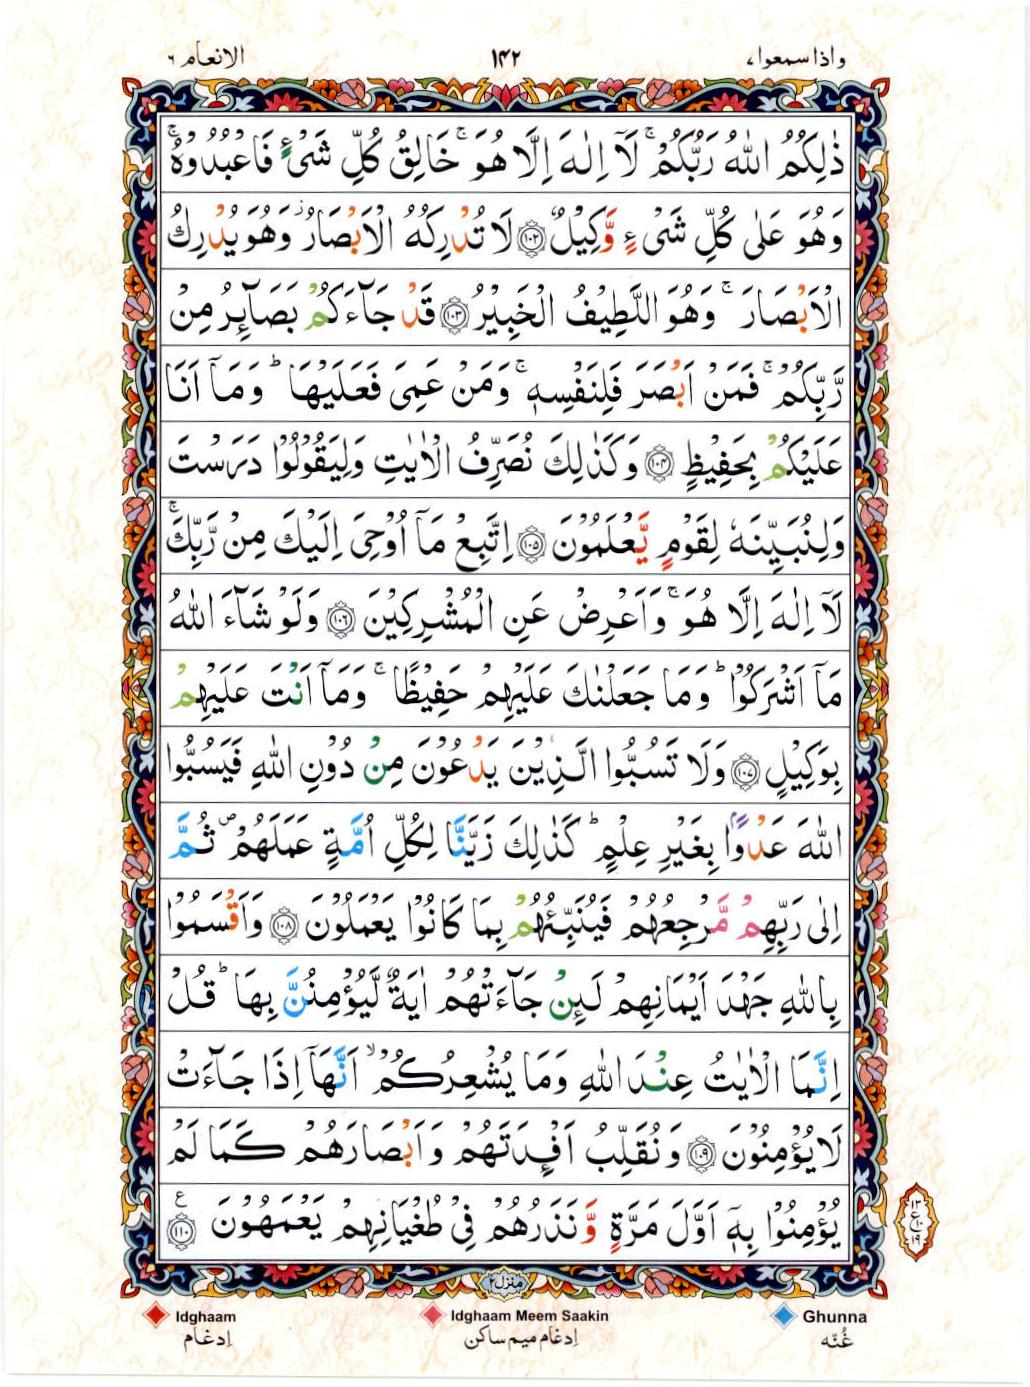 واذا سمعوا ۷
۱۴۲
الانعام ۶
ذٰلِكُمُ اللّٰهُ رَبُّكُمْ ۚ لَاۤ اِلٰهَ اِلَّا هُوَ ۚ خَالِقُ كُلِّ شَیْءٍ فَاعْبُدُوْهُ ۚ
وَهُوَ عَلٰی كُلِّ شَیْءٍ وَّكِیْلٌ ۝۱۰۲ لَا تُدْرِكُهُ الْاَبْصَارُ ؗ وَهُوَ یُدْرِكُ
الْاَبْصَارَ ۚ وَهُوَ اللَّطِیْفُ الْخَبِیْرُ ۝۱۰۳ قَدْ جَآءَكُمْ بَصَآئِرُ مِنْ
رَّبِّكُمْ ۚ فَمَنْ اَبْصَرَ فَلِنَفْسِهٖ ۚ وَمَنْ عَمِیَ فَعَلَیْهَا ؕ وَمَاۤ اَنَا
عَلَیْكُمْ بِحَفِیْظٍ ۝۱۰۴ وَكَذٰلِكَ نُصَرِّفُ الْاٰیٰتِ وَلِیَقُوْلُوْا دَرَسْتَ
وَلِنُبَیِّنَهٗ لِقَوْمٍ یَّعْلَمُوْنَ ۝۱۰۵ اِتَّبِعْ مَاۤ اُوْحِیَ اِلَیْكَ مِنْ رَّبِّكَ ۚ
لَاۤ اِلٰهَ اِلَّا هُوَ ۚ وَاَعْرِضْ عَنِ الْمُشْرِكِیْنَ ۝۱۰۶ وَلَوْ شَآءَ اللّٰهُ
مَاۤ اَشْرَكُوْا ؕ وَمَا جَعَلْنٰكَ عَلَیْهِمْ حَفِیْظًا ۚ وَمَاۤ اَنْتَ عَلَیْهِمْ
بِوَكِیْلٍ ۝۱۰۷ وَلَا تَسُبُّوا الَّذِیْنَ یَدْعُوْنَ مِنْ دُوْنِ اللّٰهِ فَیَسُبُّوا
اللّٰهَ عَدْوًۢا بِغَیْرِ عِلْمٍ ؕ كَذٰلِكَ زَیَّنَّا لِكُلِّ اُمَّةٍ عَمَلَهُمْ ۪ ثُمَّ
اِلٰی رَبِّهِمْ مَّرْجِعُهُمْ فَیُنَبِّئُهُمْ بِمَا كَانُوْا یَعْمَلُوْنَ ۝۱۰۸ وَاَقْسَمُوْا
بِاللّٰهِ جَهْدَ اَیْمَانِهِمْ لَئِنْ جَآءَتْهُمْ اٰیَةٌ لَّیُؤْمِنُنَّ بِهَا ؕ قُلْ
اِنَّمَا الْاٰیٰتُ عِنْدَ اللّٰهِ وَمَا یُشْعِرُكُمْ ۙ اَنَّهَاۤ اِذَا جَآءَتْ
لَا یُؤْمِنُوْنَ ۝۱۰۹ وَنُقَلِّبُ اَفْـِٕدَتَهُمْ وَاَبْصَارَهُمْ كَمَا لَمْ
یُؤْمِنُوْا بِهٖۤ اَوَّلَ مَرَّةٍ وَّنَذَرُهُمْ فِیْ طُغْیَانِهِمْ یَعْمَهُوْنَ ۝۱۱۰ ع
۱۳ ع ۱۰ ۱۹
منزل ۲
Idghaam
Idghaam Meem Saakin
Ghunna
اِدغَام
اِدغَام میم ساکن
غُنّه